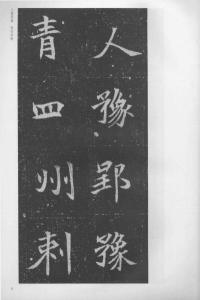 人豫郢豫
青四州刺